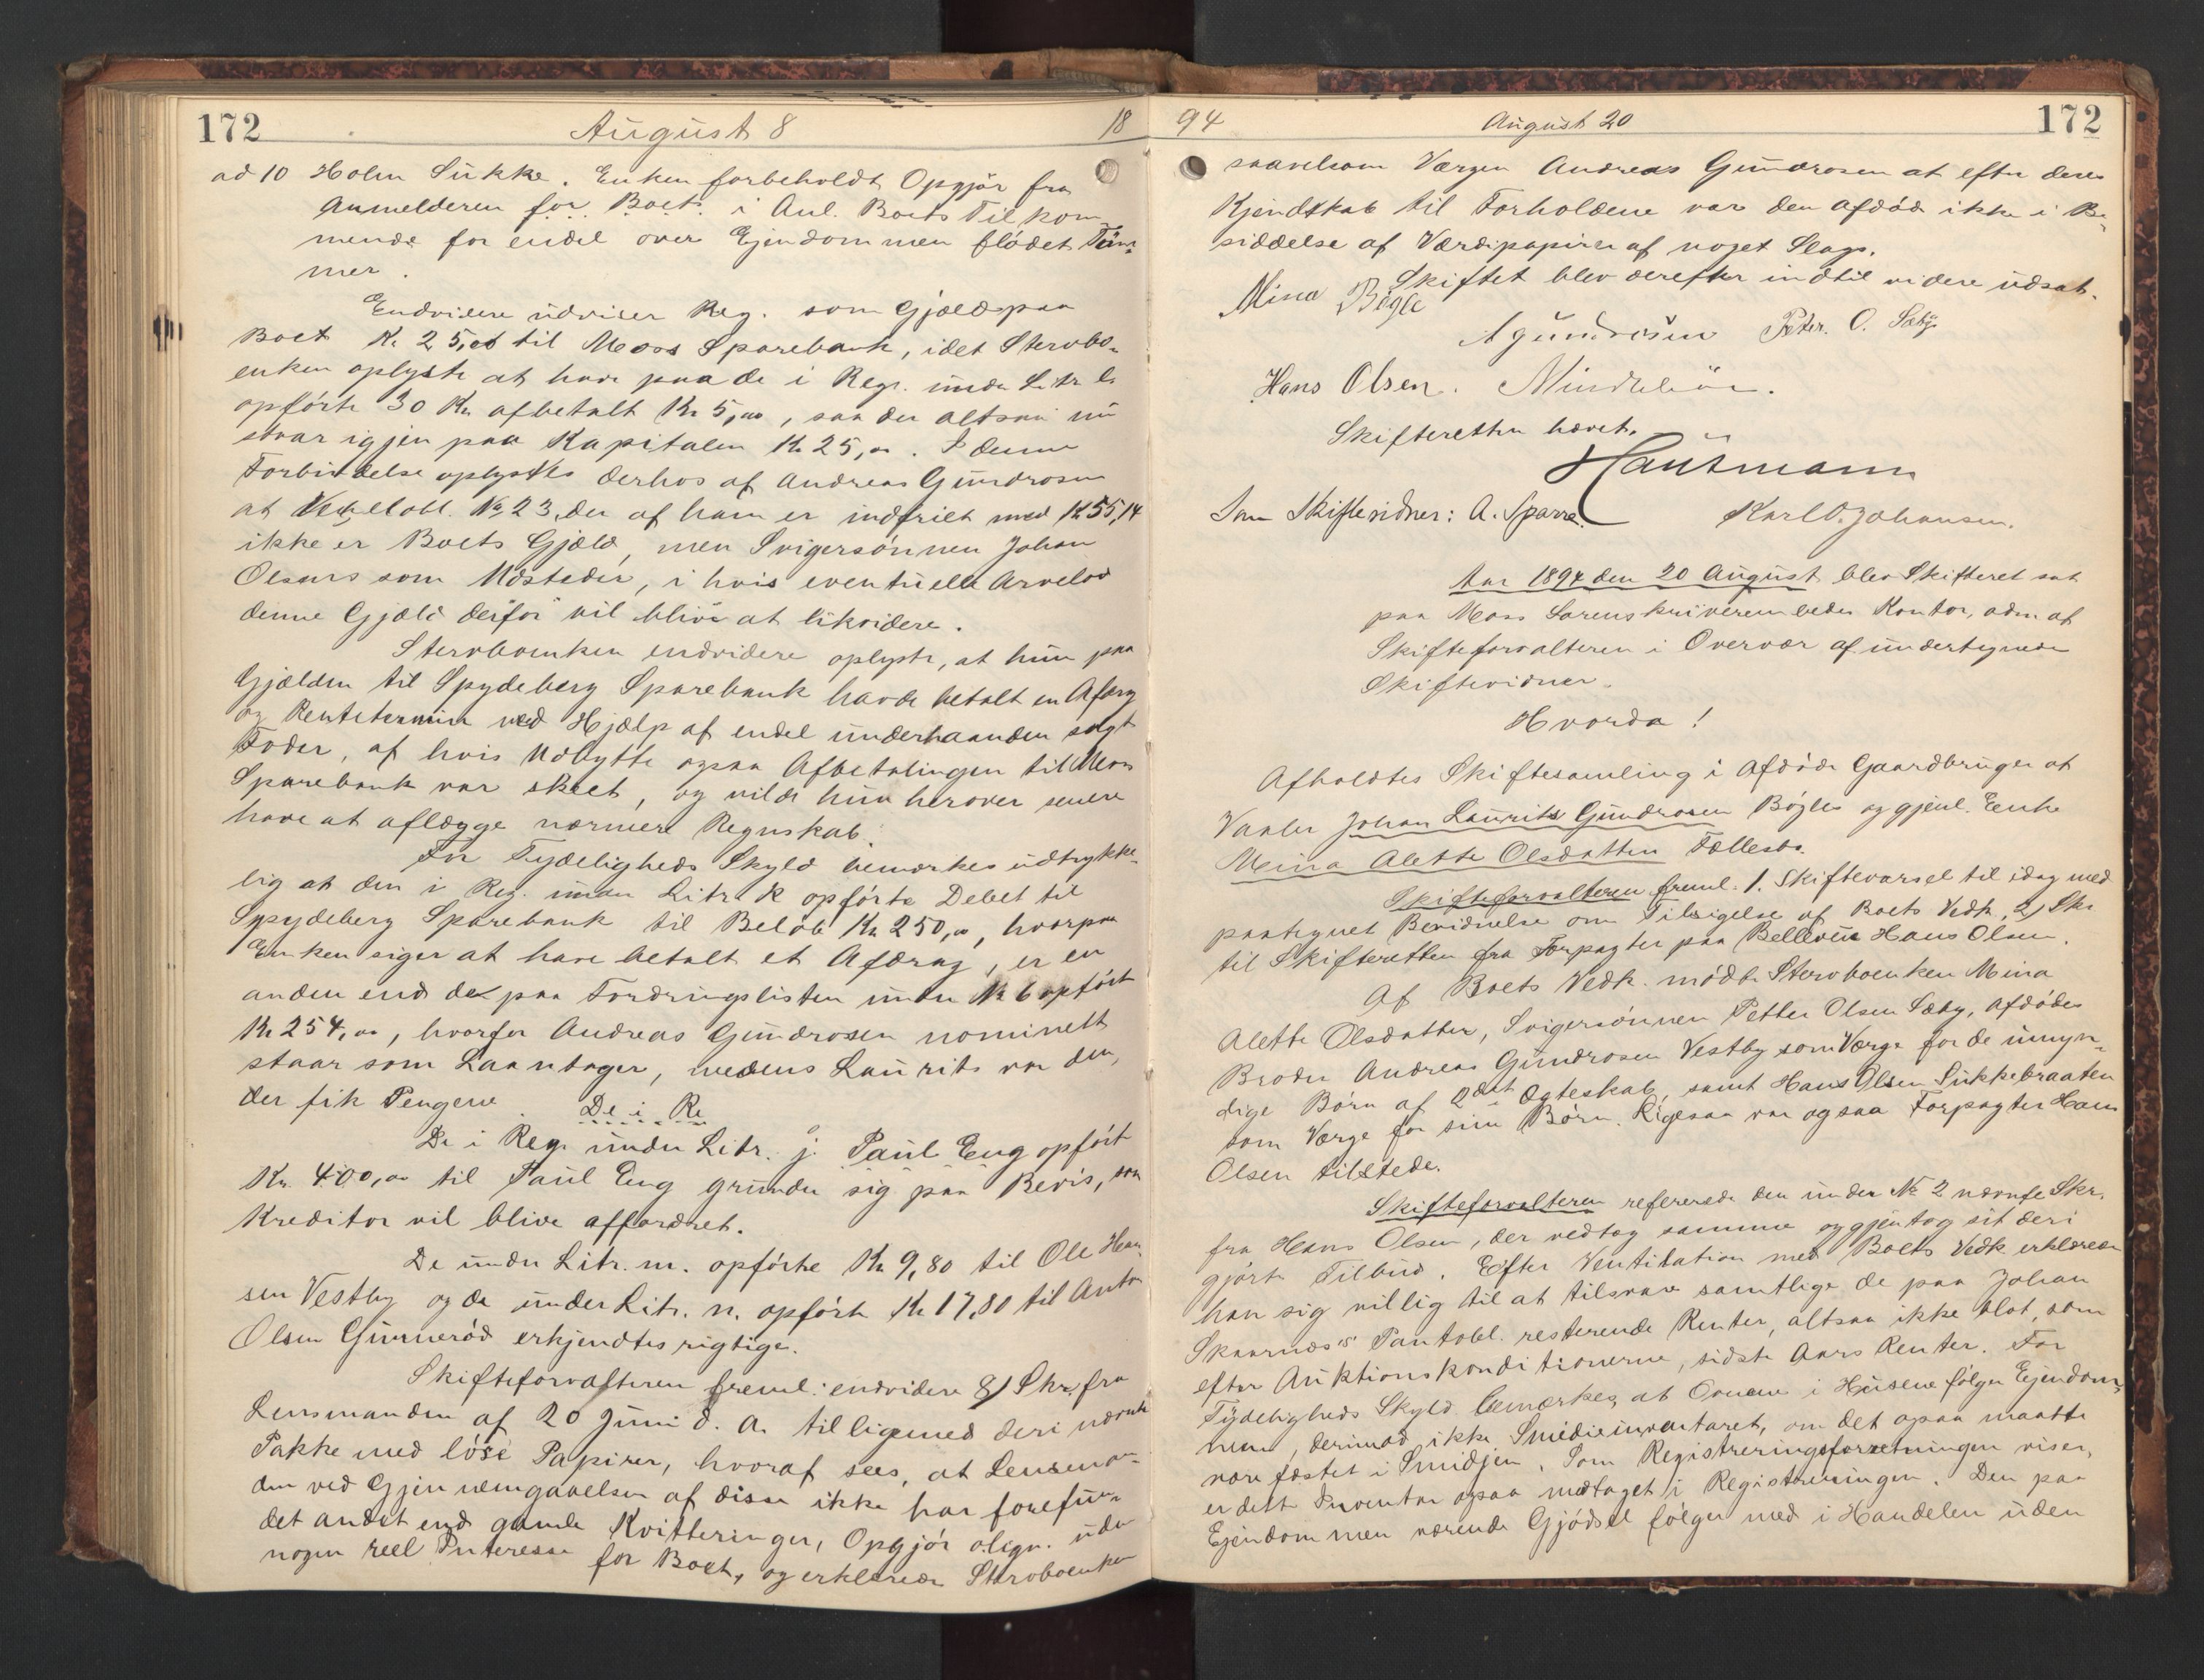 172
August 8
18
ad 10 Holm Sukke. Enken forbeholdt Opgjør fra
Anmelderen for Boets i Anl. Boets Tilkom-
mende for endel over Ejendommen flødet Töm-
mer.
Endvidere udviser Reg. som Gjæld paa
Boet Kr. 25,00 til Moss Sparebank, idet Stervbo-
enken oplyste at have paa de i Regr. under Litr
opførte 30 Kr afbetalt Kr 5,00, saa der altsaa nu
staar igjen paa Kapitalen Kr 25,00. I denne
Forbindelse oplystes derhos af Andreas Gundrosen
at Vexelobl. No 23, der af ham er indfriet med Kr 55,14
ikke er Boets Gjæld, men Svigersønnen Johan
Olsens som Udsteder, i hvis eventuelle Arvelod
denne Gjæld derfor vil blive at likvidere.
Stervboenken endvidere oplyste, at hun paa
Gjælden til Spydeberg Sparebank havde betalt en Afdrag
og Rentetermin ved Hjælp af endel underhaanden solgt
Foder, af hvis Udbytte ogsaa Afbetalingen til Moss
Sparebank var skeet, og vilde hun herover senere
have at aflægge nærmere Regnskab.
For Tydeligheds Skyld bemærkes udtrykke-
lig at den i Reg. under Litr k opførte Debet til
Spydeberg Sparebank til Beløb Kr 250,00, hvorpaa
Enken siger at have betalt et Afdrag, er en
anden end den paa Fordringslisten under No 6 opført
Kr 254,00, hvorfor Andreas Gundrosen nominelt
staar som Laantager, medens Laurits var den,
der fik Pengene. De i Re
De i Reg. under Litr. j. Paul Eng opført
Kr. 400,00 til Paul Eng grunder sig paa Bevis, som
Kreditor vil blive affordret.
De under Litr. m. opførte Kr 9,80 til Ole Han-
sen Vestby og de under Litr. n. opførte Kr 17,80 til Anton
Olsen Gunnerød erkjendtes rigtige.
Skifteforvalteren freml. endvidere 8) Skr. fra
Lensmanden af 20 Juni d. A. tilligemed deri nævnte
Pakke med løse Papirer, hvoraf sees, at Lensman-
den ved Gjennemgaaelsen af disse ikke har forefun-
det andet end gamle Kvitteringer, Opgjør olign. uden
nogen reel Interesse for Boet, og erklærede Stervboenken
94
August 20
172
saavelsom Værgen Andreas Gundrosen at efter deres
Kjendskab til Forholdene var den Afdøde ikke i Be-
siddelse af Værdipapirer af noget Slags.
Skiftet blev derefter indtil videre udsat.
Mina Bøgle
A Gundrosen Peter. O. Sæby
Hans Olsen.
Skifteretten hævet.
Hautmann
Som Skiftevidner: A. Sparre. Karl O. Johansen.
Aar 1894 den 20 August blev Skifteret sat
paa Moss Sorenskriverembedes Kontor, adm. af
Skifteforvalteren i Overvær af undertegnede
Skiftevidner.
Hvorda!
Afholdtes Skiftesamling i Afdøde Gaardbruger af
Vaaler Johan Laurits Gundrosen Bøgles og gjenl. Enke
Mina Alette Olsdatters Fællesbo.
Skifteforvalteren freml. 1. Skiftevarsel til idag med
paategnet Bevidnelse om Tilsigelse af Boets Vedk, 2) Skr
til Skifteretten fra Forpagter paa Bellevue Hans Olsen.
Af Boets Vedk. mødte Stervboenken Mina
Alette Olsdatter, Svigersønnen Petter Olsen Sæby, Afdødes
Broder Andreas Gundrosen Vestby som Værge for de umyn-
dige Børn af 2det Ægteskab, samt Hans Olsen Sukkebraaten
som Værge for sine Børn. Ligesaa var ogsaa Forpagter Hans
Olsen tilstede.
Skifteforvalteren refererede den under No 2 nævnte Skr.
fra Hans Olsen, der vedtog samme og gjentog sit deri
gjørte Tilbud. Efter Ventilation med Boets Vedk. erklærede
han sig villig til at tilsvare samtlige de paa Johan
Skaarnæs's Pantobl. resterende Renter, altsaa ikke blot, som
efter Auktionskonditionerne, sidste Aars Renter. For
Tydeligheds Skyld bemærkes, at Ovnene i Husene følger Ejendom-
men, derimod ikke Smedieinventaret, om det ogsaa maatte
være fæstet i Smidjen. Som Registreringsforretningen viser,
er dette Inventar ogsaa medtaget i Registreringen. Den paa
Ejendommen værende Gjødsel følger med i Handelen uden